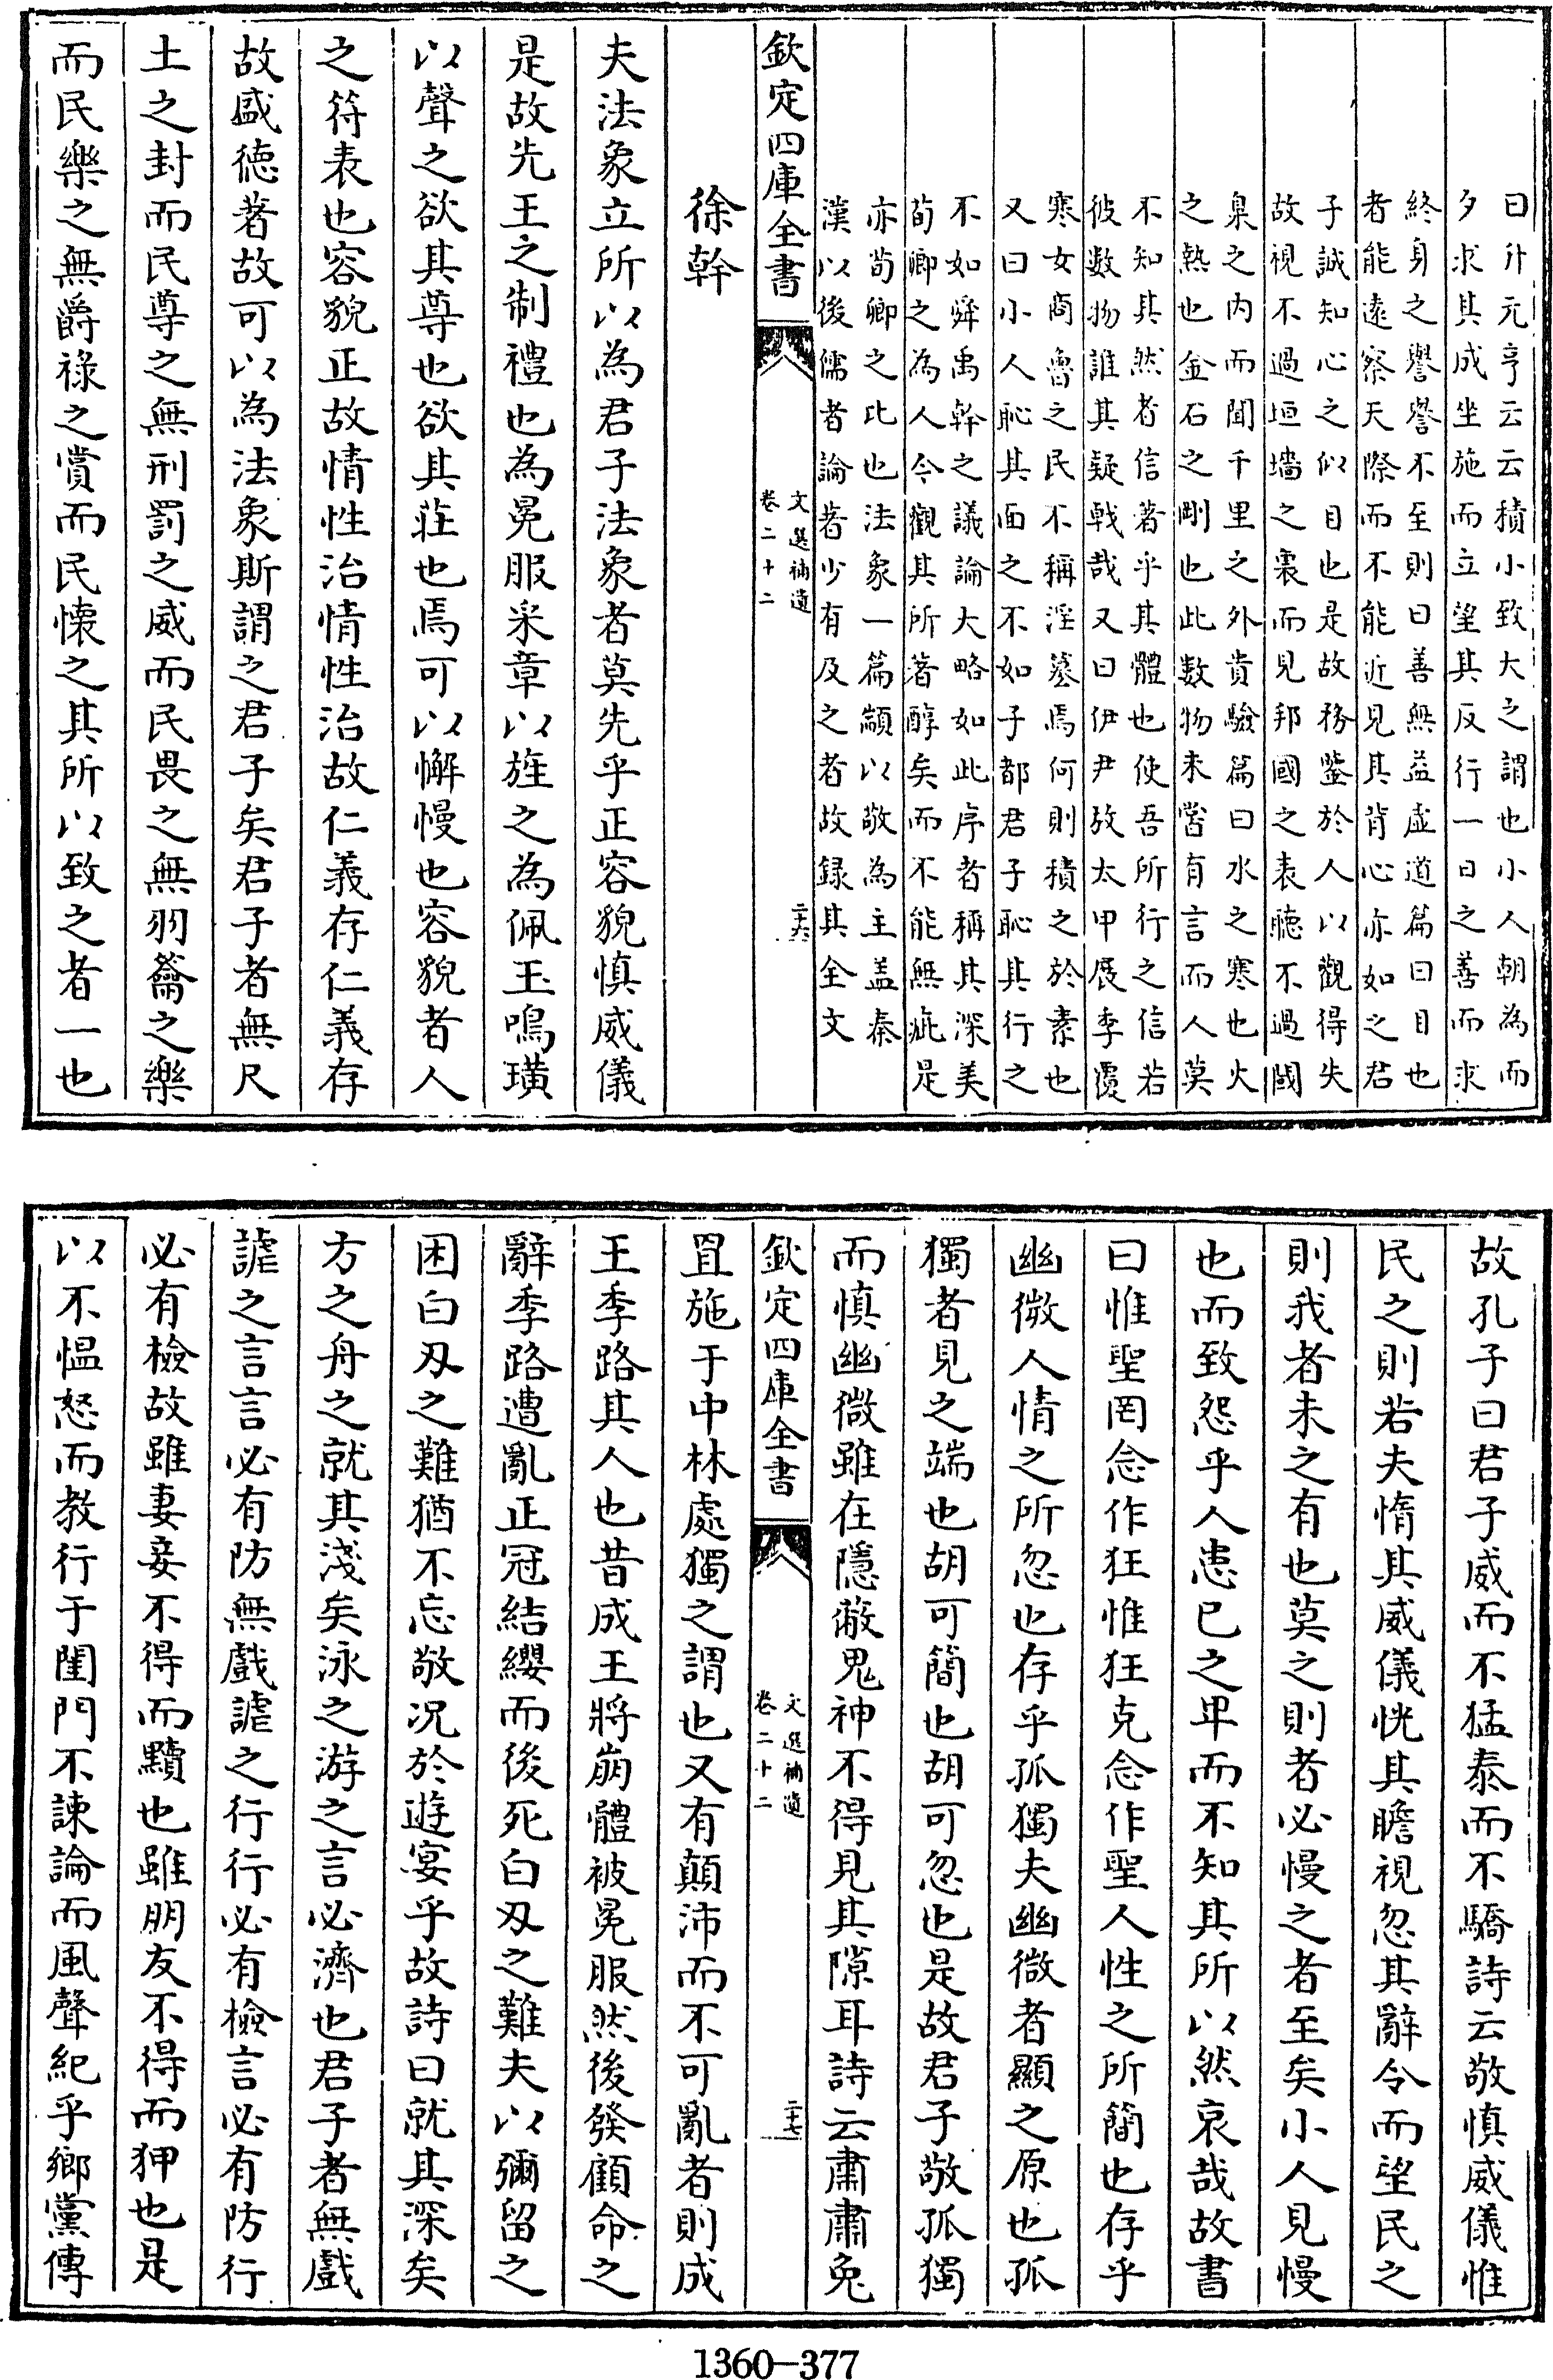 曰升元亨云云積小致大之謂也小人朝為而
夕求其成坐施而立望其反行一日之善而求
終身之譽譽不至則曰善無益虛道篇曰目也
者能遠察天際而不能近見其背心亦如之君
子誠知心之似目也是故務鑒於人以觀得失
故視不過垣墻之裏而見邦國之表聽不過閾
臬之内而聞千里之外貴驗篇曰水之寒也火
之熱也金石之剛也此數物未嘗有言而人莫
不知其然者信著乎其體也使吾所行之信若
彼數物誰其疑戟哉又曰伊尹放太甲展季覆
寒女商魯之民不稱淫簒焉何則積之於素也
又曰小人恥其面之不如子都君子恥其行之
不如舜禹幹之議論大略如此序者稱其深美
荀卿之為人今觀其所著醇矣而不能無疵是
亦荀卿之比也法象一篇顓以敬為主盖秦
漢以後儒者論著少有及之者故録其全文
欽定四庫全書
文選補遺
卷二十二
二十六
徐幹
夫法象立所以為君子法象者莫先乎正容貌慎威儀
是故先王之制禮也為冕服采章以旌之為佩玉鳴璜
以聲之欲其尊也欲其莊也焉可以懈慢也容貌者人
之符表也容貌正故情性治情性治故仁義存仁義存
故盛徳著故可以為法象斯謂之君子矣君子者無尺
土之封而民尊之無刑罰之威而民畏之無羽籥之樂
而民樂之無爵祿之賞而民懐之其所以致之者一也
故孔子曰君子威而不猛泰而不驕詩云敬慎威儀惟
民之則若夫惰其威儀恍其瞻視忽其辭令而望民之
則我者未之有也莫之則者必慢之者至矣小人見慢
也而致怨乎人患已之卑而不知其所以然哀哉故書
曰惟聖罔念作狂惟狂克念作聖人性之所簡也存乎
幽微人情之所忽也存乎孤獨夫幽微者顯之原也孤
獨者見之端也胡可簡也胡可忽也是故君子敬孤獨
而慎幽微雖在隱蔽鬼神不得見其隙耳詩云肅肅兔
欽定四庫全書
文選補遺
卷二十二
二十七
罝施于中林處獨之謂也又有顛沛而不可亂者則成
王季路其人也昔成王將崩體被冕服然後發顧命之
辭季路遭亂正冠結纓而後死白刄之難夫以彌留之
困白刄之難猶不忘敬況於遊宴乎故詩曰就其深矣
方之舟之就其淺矣泳之游之言必濟也君子者無戲
謔之言言必有防無戲謔之行行必有檢言必有防行
必有檢故雖妻妾不得而黷也雖朋友不得而狎也是
以不愠怒而教行于閨門不諫論而風聲紀乎鄉黨傳
1360-377